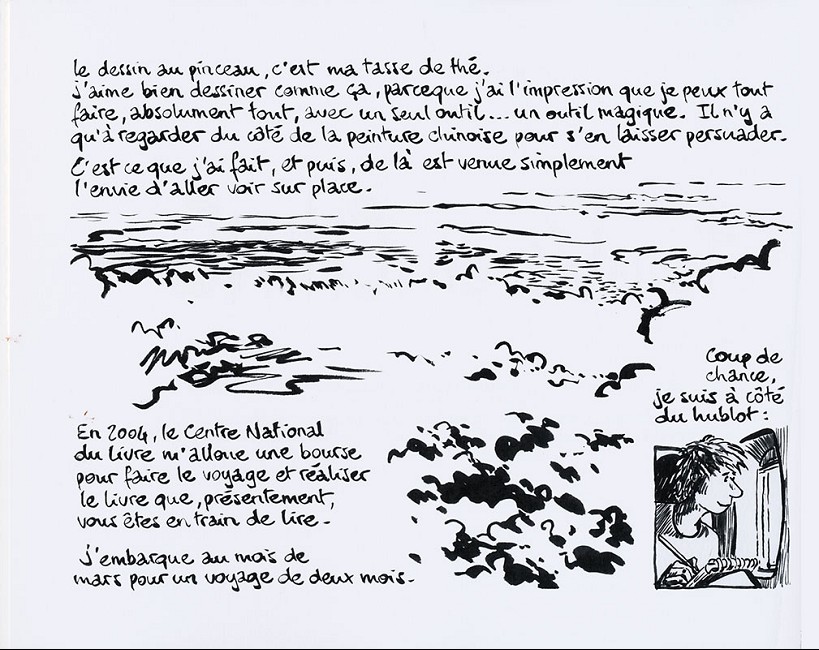 le dessin au pinceau, c'est ma tasse de thé.
j'aime bien dessiner comme ça, parceque j'ai l'impression que je peux tout
faire, absolument tout, avec un seul outil... un outil magique. Il n'y a
qu'à regarder du côté de la peinture chinoise pour s'en laisser persuader.
C'est ce que j'ai fait, et puis, de là est venue simplement
l'envie d'aller voir sur place.
Coup de
chance,
je suis à côté
du hublot :
En 2004, le Centre National
du livre m'alloue une bourse
pour faire le voyage et réaliser
le livre que, présentement,
vous êtes en train de lire.
j'embarque au mois de
mars pour un voyage de deux mois.